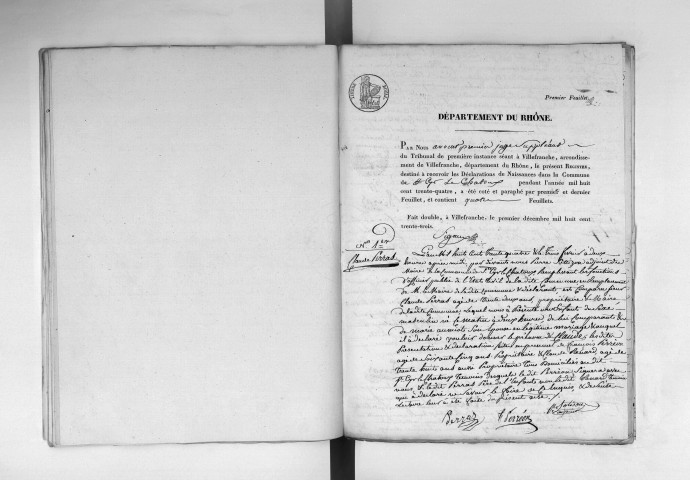 Premier Feuillet
DÉPARTEMENT DU RHÔNE.
PAR NOUS avocat premier juge suppléant
du Tribunal de première instance séant à Villefranche, arrondisse-
ment de Villefranche, département du Rhône, le présent REGISTRE,
destiné à recevoir les Déclarations de Naissances dans la Commune
de St Cyr Le Chatoux pendant l'année mil huit
cent trente-quatre, a été coté et paraphé par premier et dernier
Feuillet, et contient quatre Feuillets.
Fait double, à Villefranche, le premier décembre mil huit cent
trente-trois.
N° 1er
Claude Perras
L'an mil huit cent trente quatre et le trois février à deux
heures après midi, par devant nous Pierre adjoint du
Maire de la commune de St Cyr le Chatoux remplissant les fonctions
d'officier public de l'état civil de la dite commune en remplacement
de M. le Maire de la dite commune est comparu
Claude Perras agé de trente deux ans, propriétaire
de la dite commune, lequel nous a présenté un Enfant du sexe
masculin né le matin à deux heures de lui comparant &
de marie son épouse en légitime mariage & auquel
il a déclaré vouloir donner le prénom de Claude, les dites
Présentation & déclaration faites en présence de françois Perréon
agé de soixante cinq ans Propriétaire & de agé de
trente huits ans aussi Propriétaire tous domiciliés au dit
St Cyr le Chatoux témoins desquels le dit Perréon signera avec
nous & le dit Perras Père de l'enfant non le dit témoin
qui a déclaré ne savoir le faire de ce requis & de suite
Lecture leur a été faite du présent acte.
Perras
f Perréon